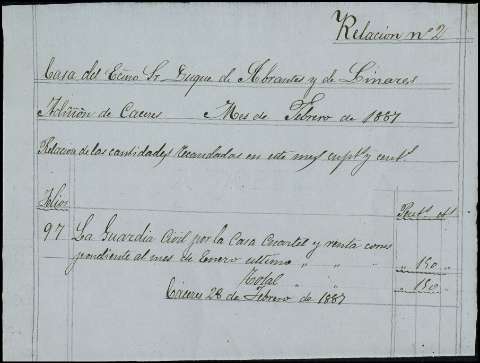 Relacion nº 2
Casa del Exmo Sr Duque de Abrantes y de Linares
Admon de Caceres Mes de Febrero de 1887
Relacion de las cantidades recaudadas en este mes
Folios
97 La Guardia Civil por la Casa Cuartel y renta corres
pondiente al mes de Enero ultimo " " 150 "
Total " " 150 "
Cáceres 28 de Febrero de 1887